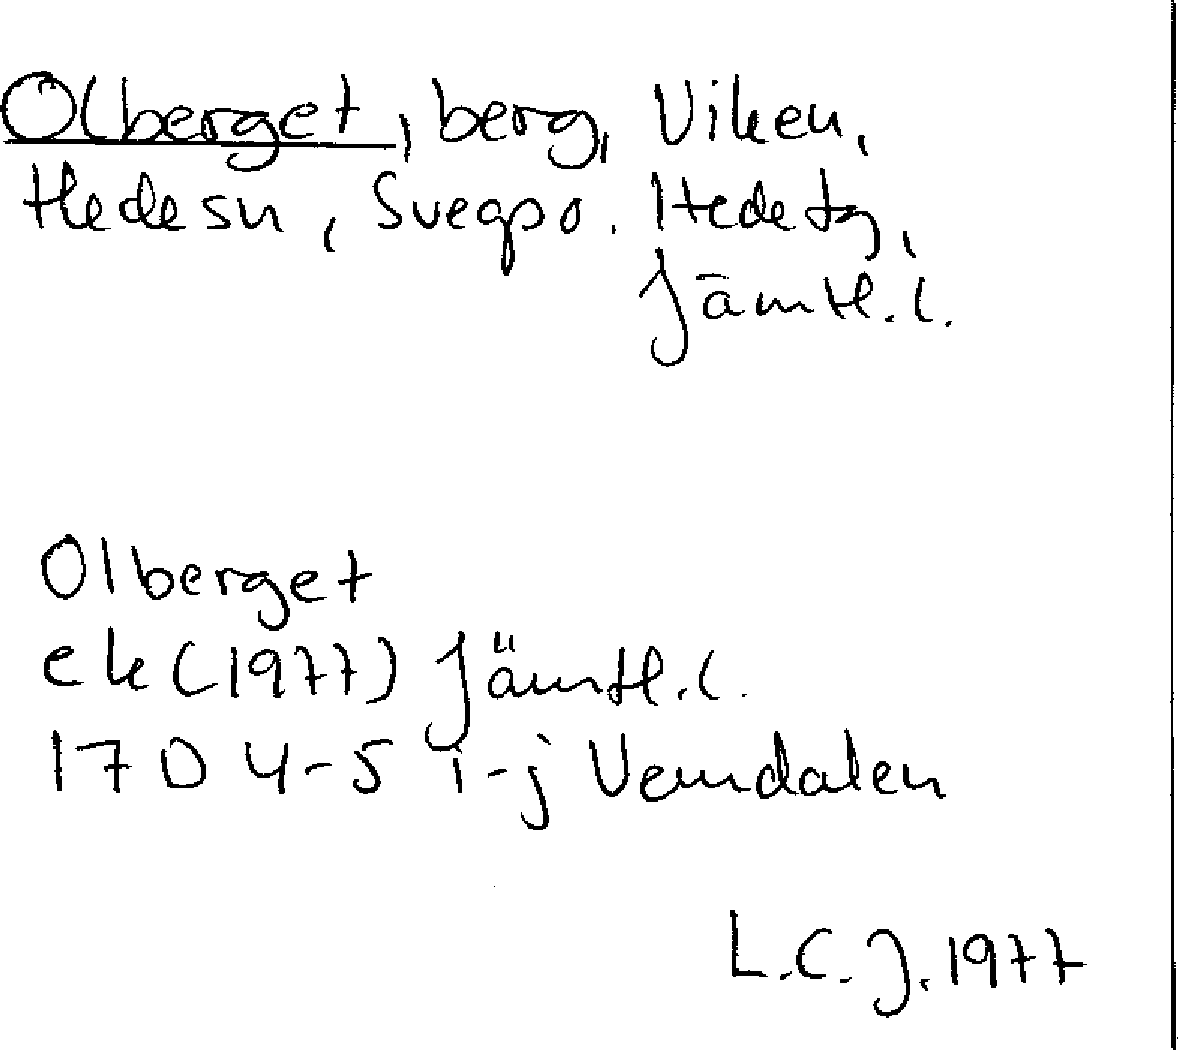 Olberget, berg, Viken,
Hedesn, Svegpo. Hede tg,
Jämtl.l.
Olberget
ek (1977) Jämtl.l.
17D 4-5 i-j Vemdalen
L.C.J. 1977